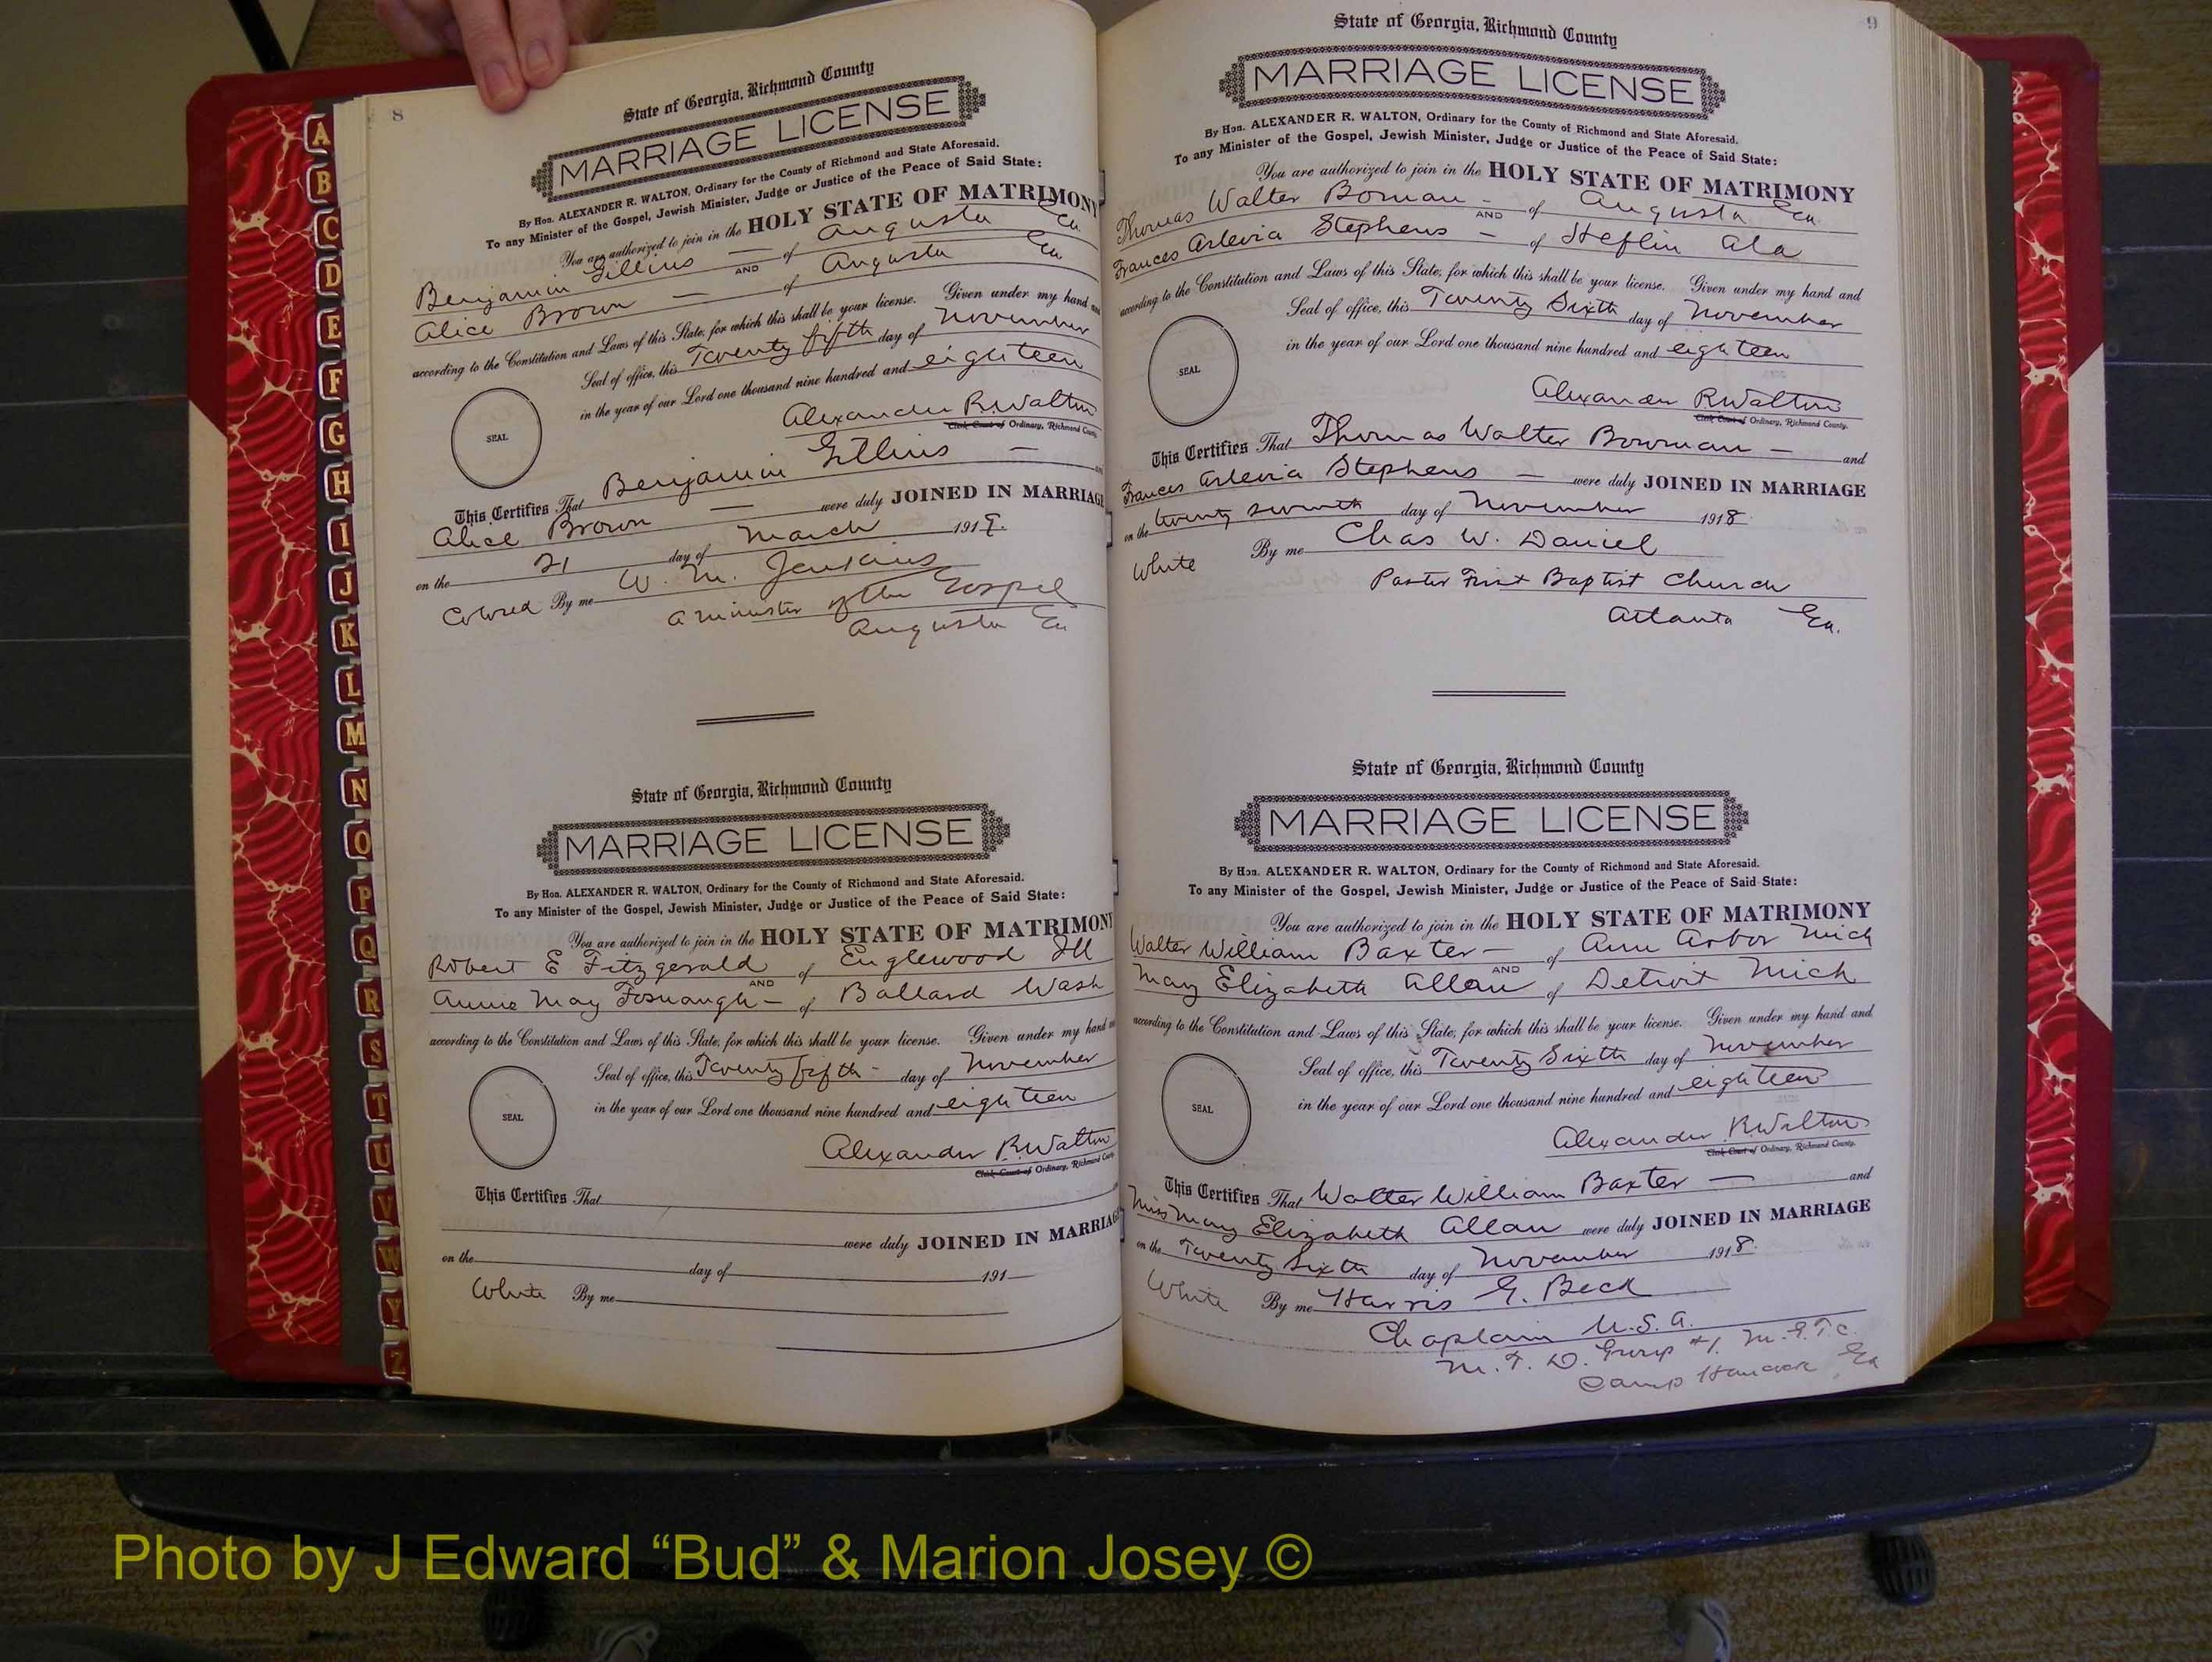 8
State of Georgia, Richmond County
MARRIAGE LICENSE
By Hon. ALEXANDER R. WALTON, Ordinary for the County of Richmond and State Aforesaid.
To any Minister of the Gospel, Jewish Minister, Judge or Justice of the Peace of Said State:
You are authorized to join in the HOLY STATE OF MATRIMONY
Benjamin Gillins — of Augusta Ga.
AND
Alice Brown — of Augusta Ga
according to the Constitution and Laws of this State, for which this shall be your license. Given under my hand and
Seal of office, this Twenty fifth day of November
in the year of our Lord one thousand nine hundred and eighteen
SEAL
Alexander R. Walton
Clerk Court of Ordinary, Richmond County.
This Certifies That Benjamin Gillins — and
Alice Brown — were duly JOINED IN MARRIAGE
on the 21 day of March 1919.
Colored By me W. M. Jenkins
a minister of the Gospel
Augusta Ga
State of Georgia, Richmond County
MARRIAGE LICENSE
By Hon. ALEXANDER R. WALTON, Ordinary for the County of Richmond and State Aforesaid.
To any Minister of the Gospel, Jewish Minister, Judge or Justice of the Peace of Said State:
You are authorized to join in the HOLY STATE OF MATRIMONY
Robert E Fitzgerald of Englewood Ill
AND
Annie May — of Ballard Wash
according to the Constitution and Laws of this State, for which this shall be your license. Given under my hand and
Seal of office, this Twenty fifth - day of November
in the year of our Lord one thousand nine hundred and eighteen
SEAL
Alexander R. Walton
Clerk Court of Ordinary, Richmond County
This Certifies That
were duly JOINED IN MARRIAGE
on the day of 191
White By me
9
State of Georgia, Richmond County
MARRIAGE LICENSE
By Hon. ALEXANDER R. WALTON, Ordinary for the County of Richmond and State Aforesaid.
To any Minister of the Gospel, Jewish Minister, Judge or Justice of the Peace of Said State:
You are authorized to join in the HOLY STATE OF MATRIMONY
Thomas Walter Boman - of Augusta Ga.
AND
Frances Arlevia Stephens — of Heflin Ala
according to the Constitution and Laws of this State, for which this shall be your license. Given under my hand and
Seal of office, this Twenty Sixth day of November
in the year of our Lord one thousand nine hundred and eighteen
SEAL
Alexander R Walton
Clerk Court of Ordinary, Richmond County.
This Certifies That Thomas Walter Bowman — and
Frances Arlevia Stephens — were duly JOINED IN MARRIAGE
on the twenty seventh day of November 1918
White By me Chas W. Daniel
Pastor First Baptist Church
Atlanta Ga.
State of Georgia, Richmond County
MARRIAGE LICENSE
By Hon. ALEXANDER R. WALTON, Ordinary for the County of Richmond and State Aforesaid.
To any Minister of the Gospel, Jewish Minister, Judge or Justice of the Peace of Said State:
You are authorized to join in the HOLY STATE OF MATRIMONY
Walter William Baxter — of Ann Arbor Mich
AND
May Elizabeth Allan of Detroit Mich
according to the Constitution and Laws of this State, for which this shall be your license. Given under my hand and
Seal of office, this Twenty Sixth day of November
in the year of our Lord one thousand nine hundred and eighteen
SEAL
Alexander R Walton
Clerk Court of Ordinary, Richmond County.
This Certifies That Walter William Baxter — and
Miss May Elizabeth Allan were duly JOINED IN MARRIAGE
on the Twenty Sixth day of November 1918.
White By me Harris G. Beck
Chaplain U.S.A.
M. T. D. Group #1, M.G.T.C.
Camp Hancock, Ga
A
B
C
D
E
F
G
H
I
J
K
L
M
N
O
P
Q
R
S
T
U
V
W
Y
Z
Photo by J Edward “Bud” & Marion Josey ©